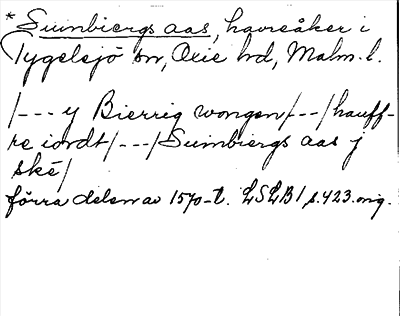 *Suinbiergs aas, havreåker i
Tygelsjö sn, Oxie hd, Malm. l.
/--- y Bierrig wongen/---/hauff-
re iordt/---/Suinbiergs aas j
ské/
förra delen av 1570-t. LSLB I s.423.orig.